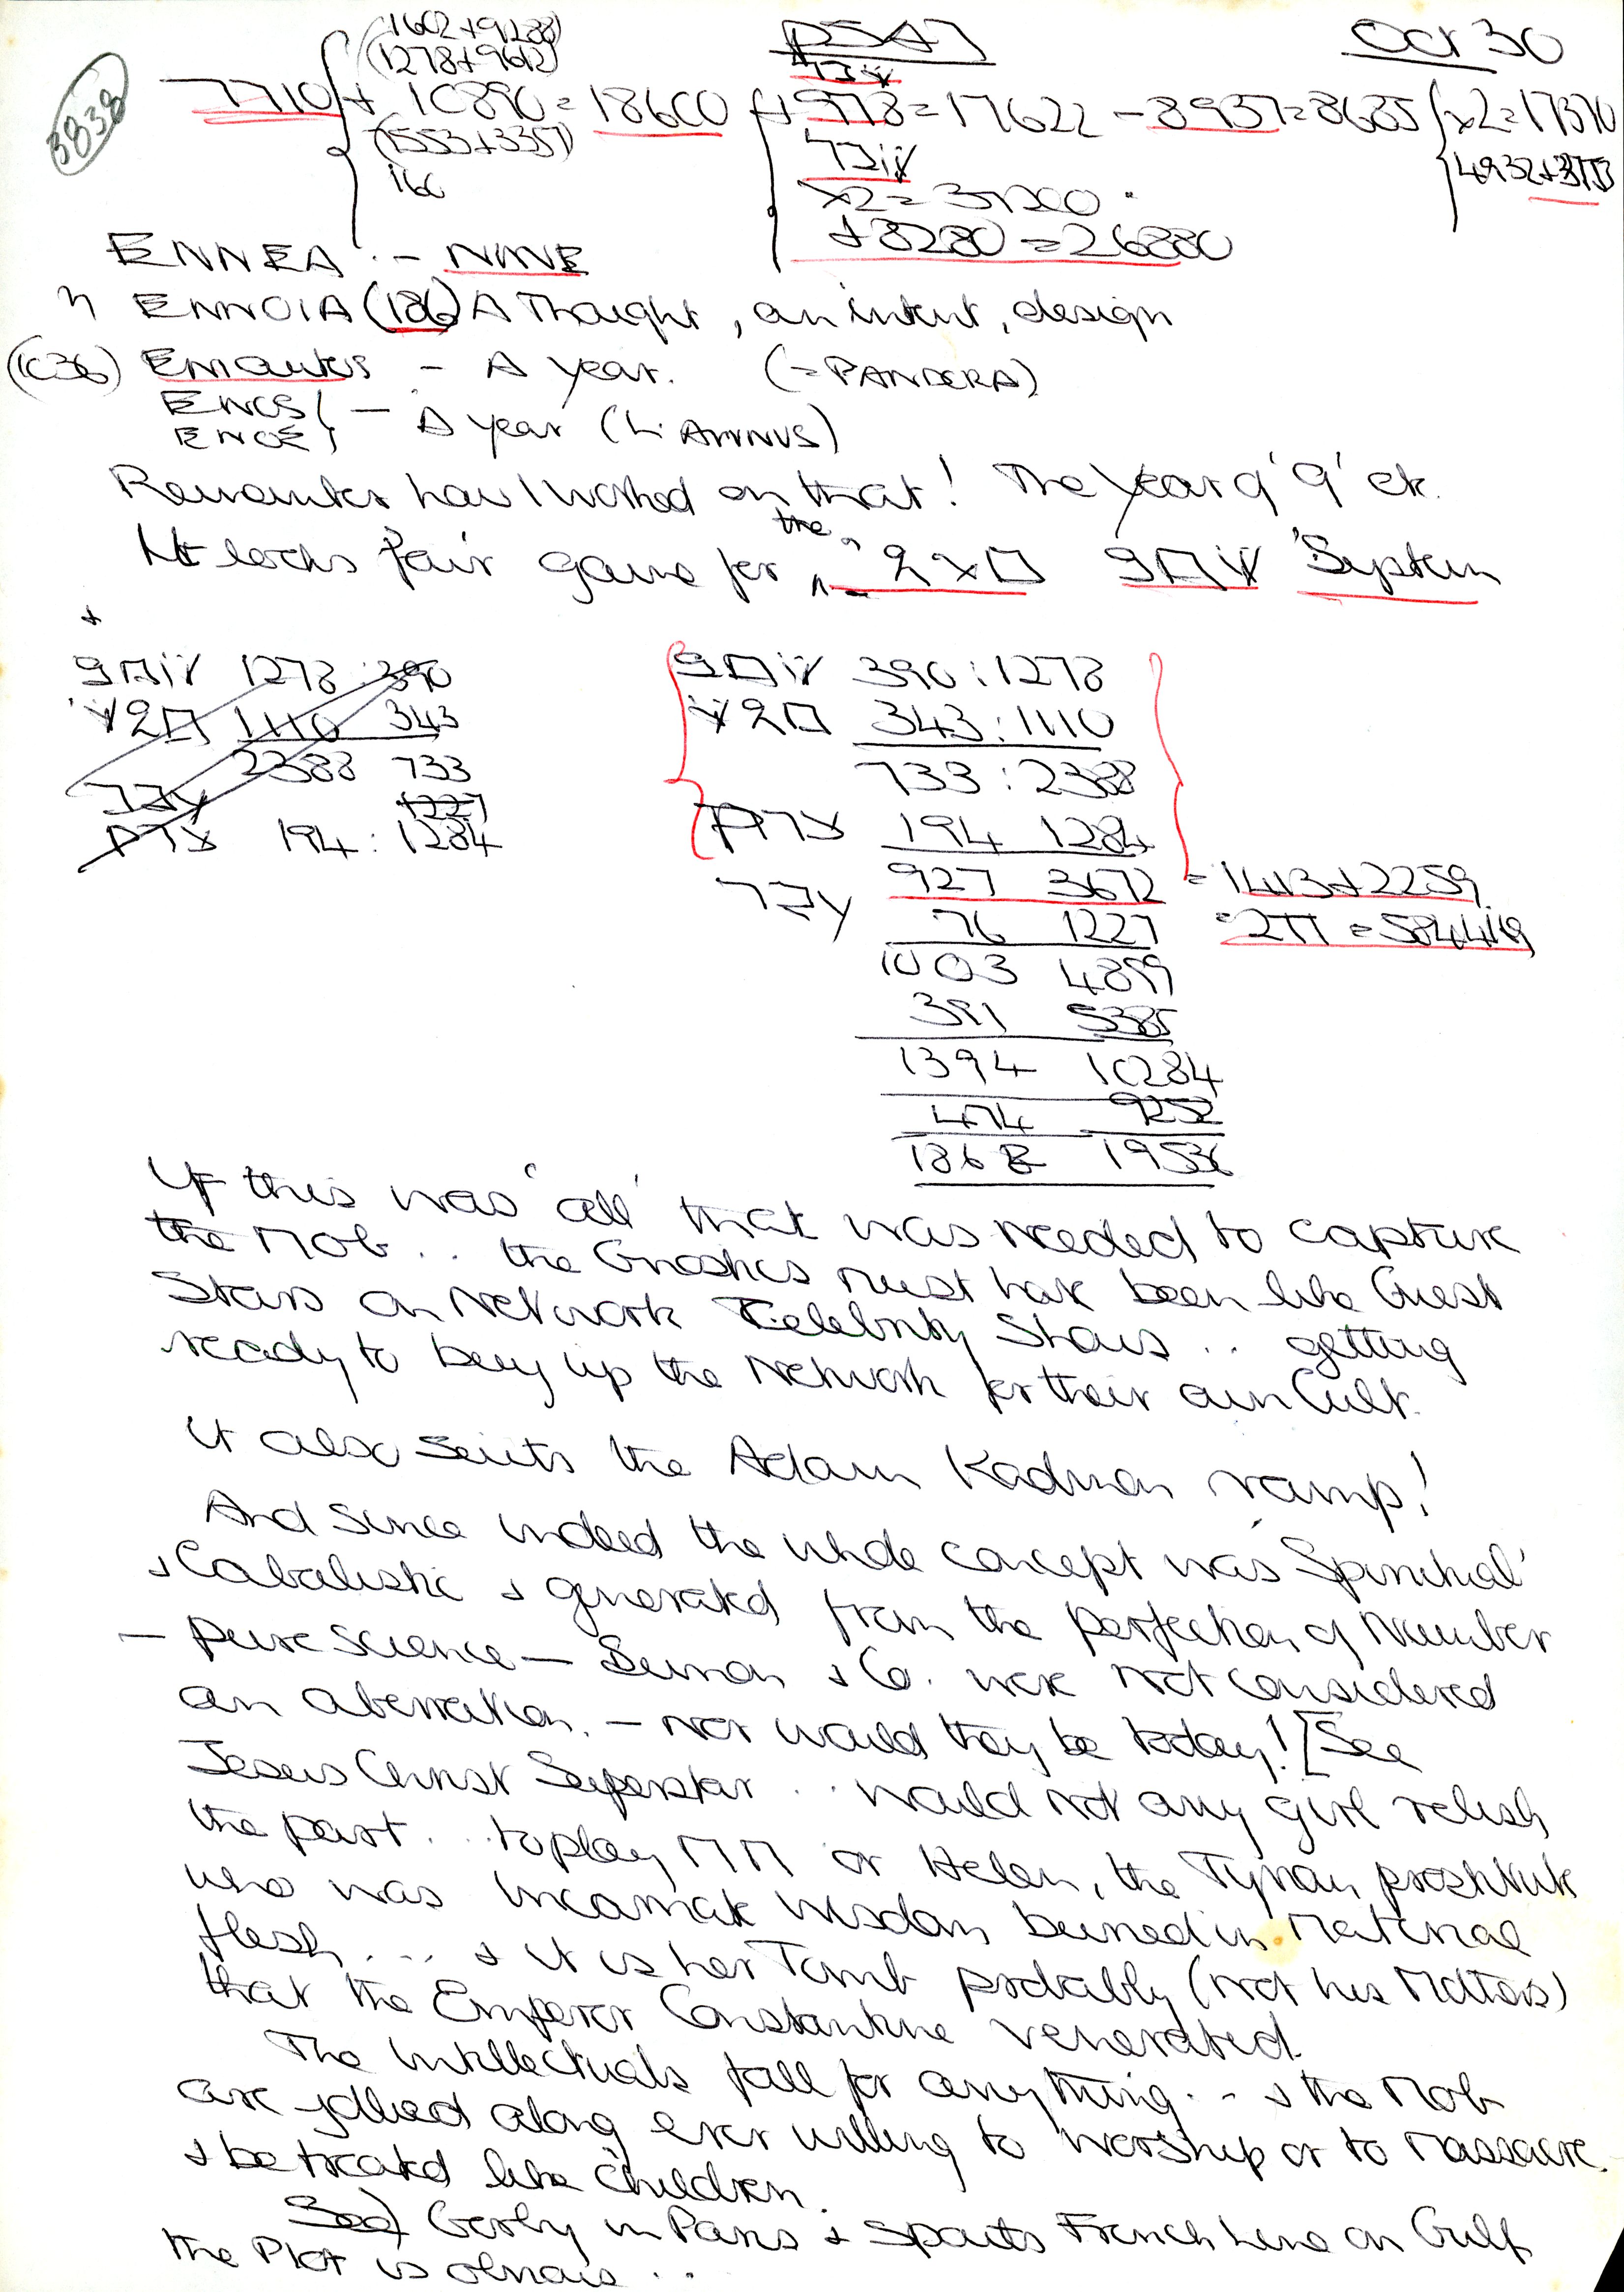 Oct 30
3838
(1602+9288)
(1278+9612)
7710 + 10890 = 18600 + 978 = 17622 - 8937 = 8685 x2 = 17370
(7553+3357)
4932+3753
166
x2 = 37200
+8280 = 26880
ENNEA .- NINE
" ENNOIA (186) A Thought, an intent, design
(1036) Eniautos - A year. (= PANDERA)
ENOS
ENOE } - A year (L. ANNUS)
Remember how I worked on that! The Year of '9' etc.
It looks fair game for the System
1278 : 390
1110 343
2388 733
1227
194 : 1284
390 : 1278
343 : 1110
733 : 2388
194 1284
927 3672 = 1413+2259
76 1227 = 2π = 584419
1003 4899
391 5385
1394 10284
474 9252
1868 19536
If this was 'all' that was needed to capture
the Mob .. the Gnostics must have been like Guest
Stars on Network Celebrity Shows .. getting
ready to buy up the Network for their own Cult.
It also suits the Adam Kadmon ramp!
And since indeed the whole concept was 'Spiritual'
+ Cabalistic + generated from the perfection of Number
- pure science - Simon + Co. were not considered
an aberration. - nor would they be today! [See
Jesus Christ Superstar .. would not any girl relish
the part .. to play MM or Helen, the Tyrian prostitute
who was incarnate wisdom buried in Material
flesh .... + it is her Tomb probably (not his Mother's)
that the Emperor Constantine venerated.
The Intellectuals fall for anything .. + the Mob
are jollied along ever willing to worship or to Massacre
+ be treated like children.
See) in Paris + French Line on Gulf
the Plot is obvious ..